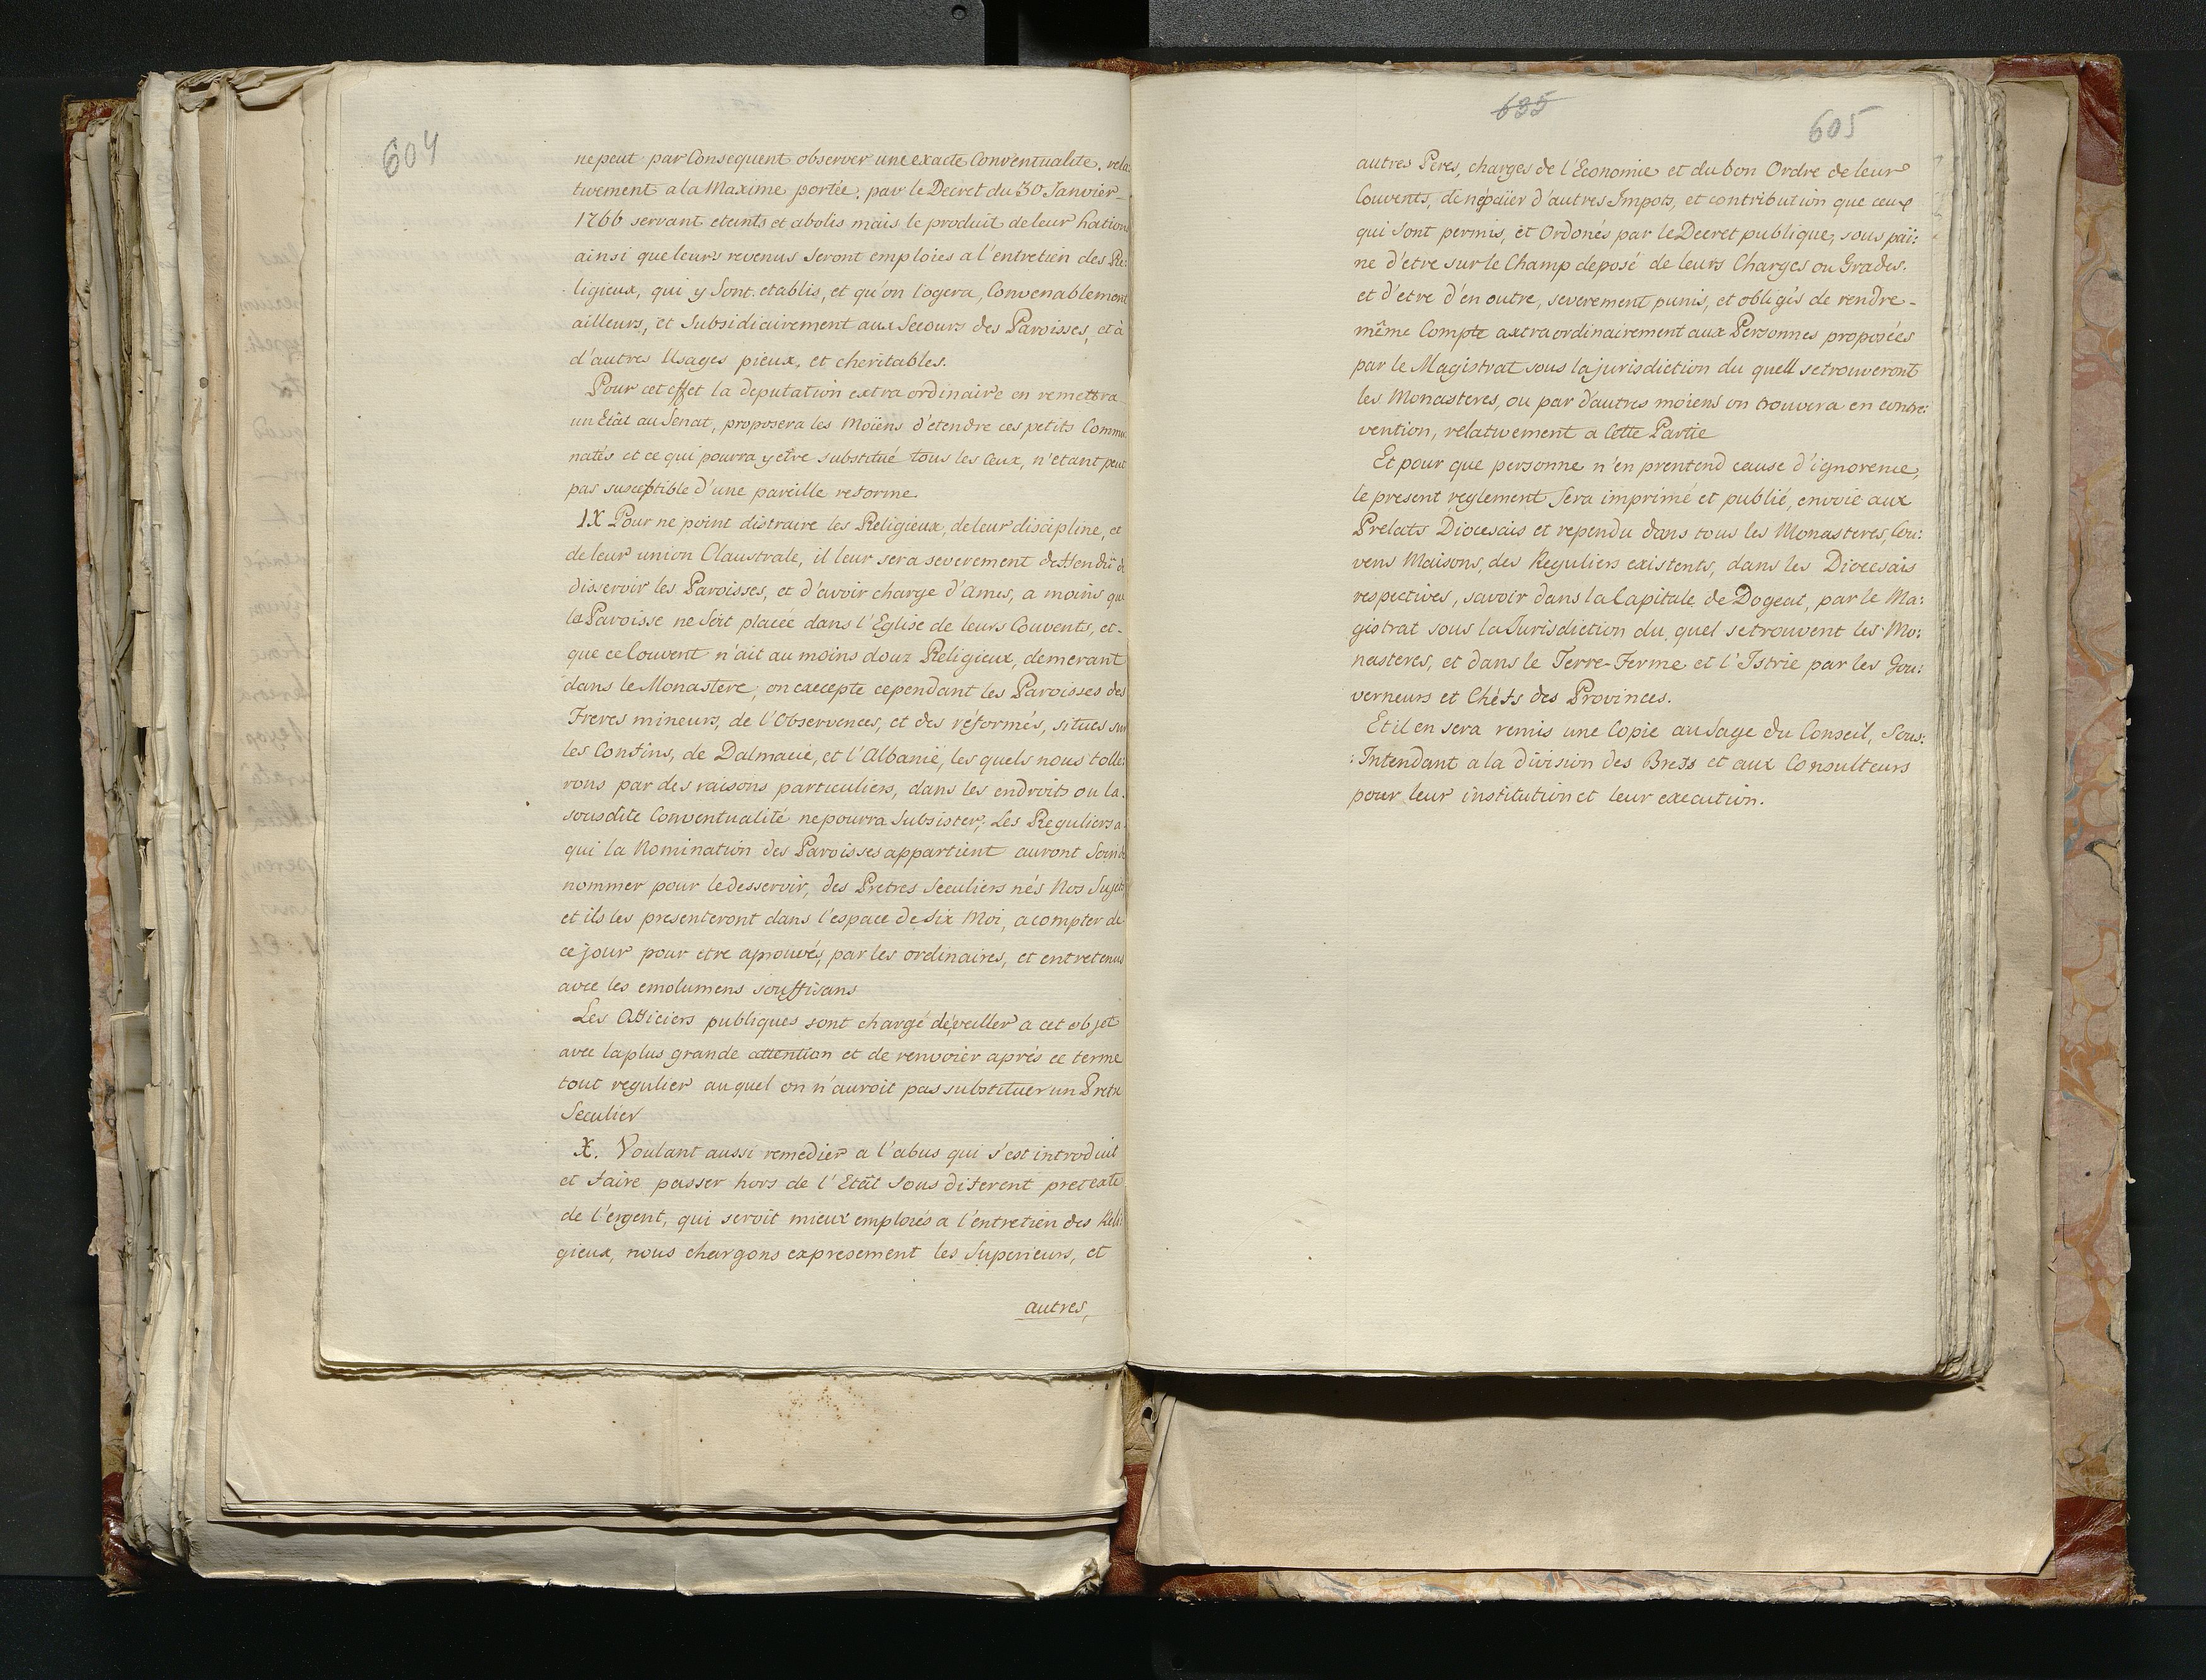 604
ne peut par Consequent observer une exacte Conventualite, rela
tivement a la Maxime portée, par le Decret du 30 Janvier
1766 servant eteints et abolis mais le produit de leur hations
ainsi que leurs revenus seront emploies a l'entretien des Re:
ligieux, qui y sont etablis, et qu'on logera, Convenablement
ailleurs, et Subsidiairement aux Secours des Paroisses, et à
d'autres Usages pieux, et cheritables.
Pour cet effet la deputation extra ordinaire en remettra
un Etât au Senat, proposera les Moïens d'etendre ces petits Commu:
natés et ce qui pourra y etre substitué tous les Ceux, n'etant peut
pas susceptible d'une pareille reforme.
IX Pour ne point distraire les Religieux, de leur discipline, et
de leur union Claustrale, il leur sera severement deffendü de
disservir les Paroisses, et d'avoir charge d'Ames, a moins que
la Paroisse ne soit placée dans l'Eglise de leurs Couvents, et
que ce Couvent n'ait au moins douz Religieux, demerant
dans le Monastere; on excepte cependant les Paroisses des
Freres mineurs, de l'Observences, et des réformés, situes sur
les Confins, de Dalmacie, et l'Albanie, les quels nous tolle:
rons par des raisons particuliers, dans les endroits ou la
sousdite Conventualité ne pourra Subsister; Les Reguliers a
qui la Nomination des Paroisses appartient auront Soin de
nommer pour le desservir, des Pretres Seculiers nés Nos Sujets
et ils les presenteront dans l'espace de Six Moi, a compter de
ce jour pour etre aprouvés, par les ordinaires, et entretenus
avec les emolumens souffisans
Les Officiers publiques sont chargé de veiller a cet objet
avec la plus grande attention et de renvoier aprés ce terme
tout regulier au quel on n'auroit pas substituer un Pretre
Seculier
X. Voulant aussi remedier a l'abus qui s'est introduit
et faire passer hors de l'Etât sous diferent pretexte
de l'ergent, qui seroit mieux emploiés a l'entretien des Reli
gieux, nous chargons expresement les Superieurs, et
autres,
635
605
autres Peres, charges de l'Economie et du bon Ordre de leur
Couvents, de négocier d'autres Impots, et contribution que ceux
qui sont permis, et Ordonés par le Decret publique, sous païi:
ne d'etre sur le Champ deposé de leurs Charges ou Grades.
et d'etre d'en outre, severement punis, et obligés de rendre-
même Compte axtraordinairement aux Personnes proposées
par le Magistrat sous la jurisdiction du quell se trouveront
les Monasteres, ou par d'autres moiens on trouvera en contre:
vention, relativement a Cette Partie
Et pour que personne n'en prentend cause d'ignorence,
le present reglement sera imprimé et publié, envoié aux
Prelats Diocesais et rependu dans tous les Monasteres, Cou:
vens Maisons, des Reguliers existents, dans les Diocesais
respectives, savoir dans la Capitale de Dogeat, par le Ma:
gistrat sous la Jurisdiction du quel se trouvent les Mo:
nasteres, et dans le Terre-Ferme et l'Istrie par les Gou:
verneurs et Chéfs des Provinces.
Et il en sera remis une Copie au Sage du Conseil, Sous:
:Intendant a la division des Brefs et aux Consulteurs
pour leur institution et leur execution.